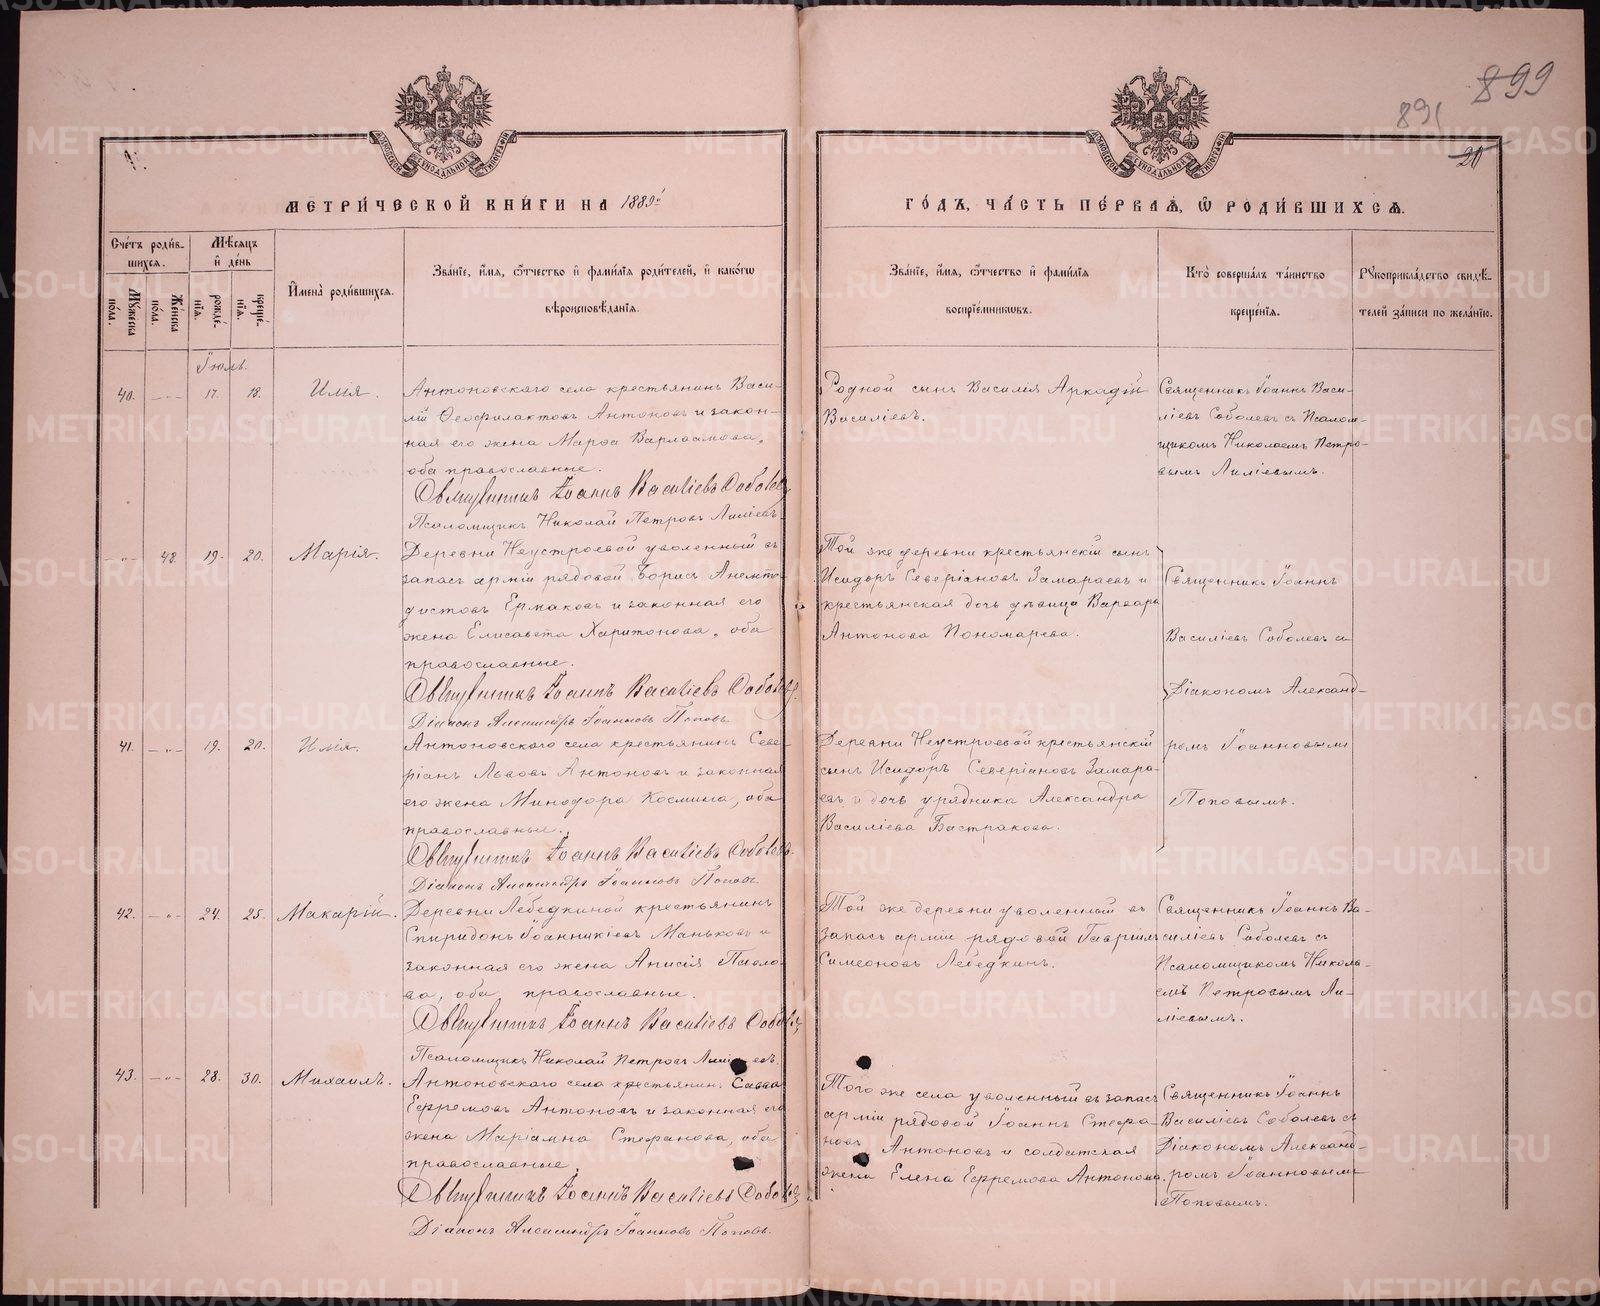 899
891
20
МОСКОВСКОЙ СИНОДАЛЬНОЙ ТИПОГРАФИИ
МОСКОВСКОЙ СИНОДАЛЬНОЙ ТИПОГРАФИИ
МЕТРИ́ЧЕСКОЙ КНИ́ГИ НА 1889й
ГО́ДЪ, ЧА́СТЬ ПЕ́РВАѦ, Ѽ РОДИ́ВШИХСѦ.
Сче́тъ роди́в-
шихсѧ.
Мꙋ́жеска по́ла.
Же́нска по́ла.
Мѣ́сѧцъ
и҆ де́нь
рожде́-нїѧ.
креще́-нїѧ.
И҆мена̀ роди́вшихсѧ.
Зва́нїе, и҆́мѧ, ѻ҆́тчество и҆ фами́лїѧ роди́телей, и҆ како́гѡ
вѣроисповѣ́данїѧ.
Зва́нїе, и҆́мѧ, ѻ҆́тчество и҆ фами́лїѧ
воспрїе́мникѡвъ.
Кто̀ соверша́лъ та́инство
креще́нїѧ.
Рꙋкоприкла́дство свидѣ́-
телей за́писи по жела́нїю.
Іюль.
40. - „ - 17. 18. Илія.
Антоновскаго села крестьянинъ Васи-
лій Ѳеофилактовъ Антоновъ и закон-
ная его жена Марѳа Варлаамова,
оба православные.
Священникъ Іоаннъ Василіевъ Соболевъ
Псаломщикъ Николай Петровъ Лиліевъ
Родной сынъ Василія Аркадій
Василіевъ.
Священникъ Іоаннъ Васи-
ліевъ Соболевъ съ Псалом-
щикомъ Николаемъ Петро-
вымъ Лиліевымъ.
- „ - 48. 19. 20. Марія.
Деревни Неустроевой уволенный въ
запасъ арміи рядовой Борисъ
Ермаковъ и законная его
жена Елисавета Харитонова, оба
православные.
Священникъ Іоаннъ Василіевъ Соболевъ
Діаконъ Александръ Іоанновъ Поповъ
Той же деревни крестьянскій сынъ
Исидоръ Северіановъ Замараевъ и
крестьянская дочь дѣвица Варвара
Антонова Пономарева.
Священникъ Іоаннъ
Василіевъ Соболевъ съ
Діакономъ Александ-
ромъ Іоанновымъ
Поповымъ.
41. - „ - 19. 20. Илія.
Антоновскаго села крестьянинъ Севе-
ріанъ Львовъ Антоновъ и законная
его жена Минодора Космина, оба
православные.
Священникъ Іоаннъ Василіевъ Соболевъ
Діаконъ Александръ Іоанновъ Поповъ
Деревни Неустроевой крестьянскій
сынъ Исидоръ Северіановъ Замара-
евъ и дочь урядника Александра
Василіева Бастракова.
42. - „ - 24. 25. Макарій.
Деревни Лебедкиной крестьянинъ
Спиридонъ Іоанникіевъ Маньковъ и
законная его жена Анисія Павло-
ва, оба православные.
Священникъ Іоаннъ Василіевъ Соболевъ
Псаломщикъ Николай Петровъ Лиліевъ
Той же деревни уволенный въ
запасъ арміи рядовой Гавріилъ
Симеоновъ Лебедкинъ.
Священникъ Іоаннъ Ва-
силіевъ Соболевъ съ
Псаломщикомъ Никола-
емъ Петровымъ Ли-
ліевымъ.
43. - „ - 28. 30. Михаилъ.
Антоновскаго села крестьянинъ Савва
Ефремовъ Антоновъ и законная его
жена Маріамна Стефанова, оба
православные.
Священникъ Іоаннъ Василіевъ Соболевъ
Діаконъ Александръ Іоанновъ Поповъ.
Того же села уволенный въ запасъ
арміи рядовой Іоаннъ Стефа-
новъ Антоновъ и солдатская
жена Елена Ефремова Антонова.
Священникъ Іоаннъ
Василіевъ Соболевъ съ
Діакономъ Александ-
ромъ Іоанновымъ
Поповымъ.
METRIKI.GASO-URAL.RU